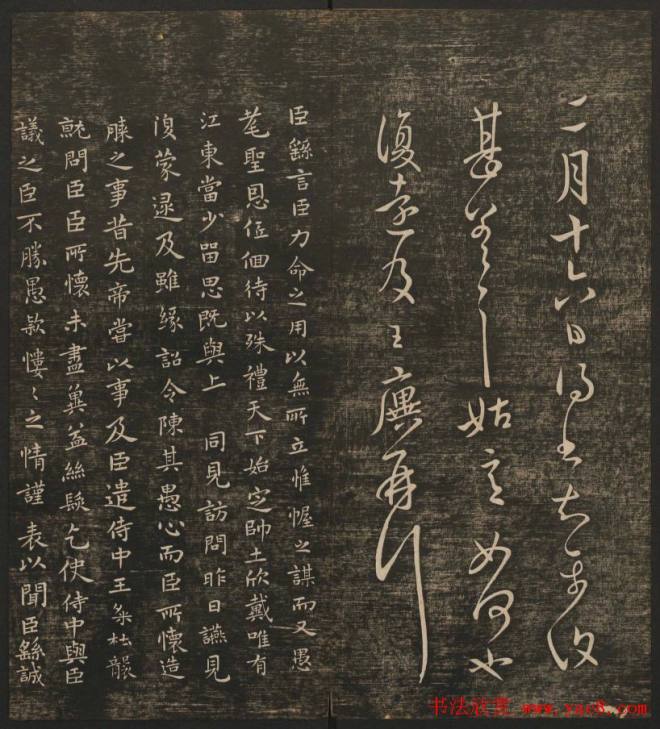 二月十六日得書知
甚 如何
復 及王廙再行
臣繇言臣力命之用以無所立惟幄之謀而又愚
耄聖恩低佪待以殊禮天下始定帥土欣戴唯有
江東當少留思既與上 同見訪問昨日讌見
復蒙逮及雖緣詔令陳其愚心而臣所懷造
膝之事昔先帝嘗以事及臣遣侍中王粲杜襲
就問臣臣所懷未盡冀益絲髮乞使侍中與臣
議之臣不勝愚款慺〻之情謹表以聞臣繇誠
书法欣赏 www.yac8.com